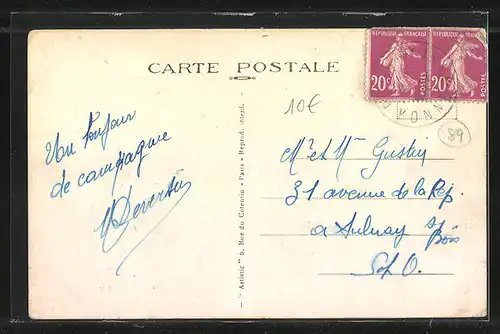 CARTE POSTALE
REPUBLIQUE FRANÇAISE
20c POSTES
REPUBLIQUE FRANÇAISE
20c POSTES
10€
89
Un bonjour
de campagne
M et Mme
31 avenue de la Rép.
a Aulnay s/ Bois
S et O.
"Artistic" 6, Rue du Cotentin - Paris - Reprod. interd.